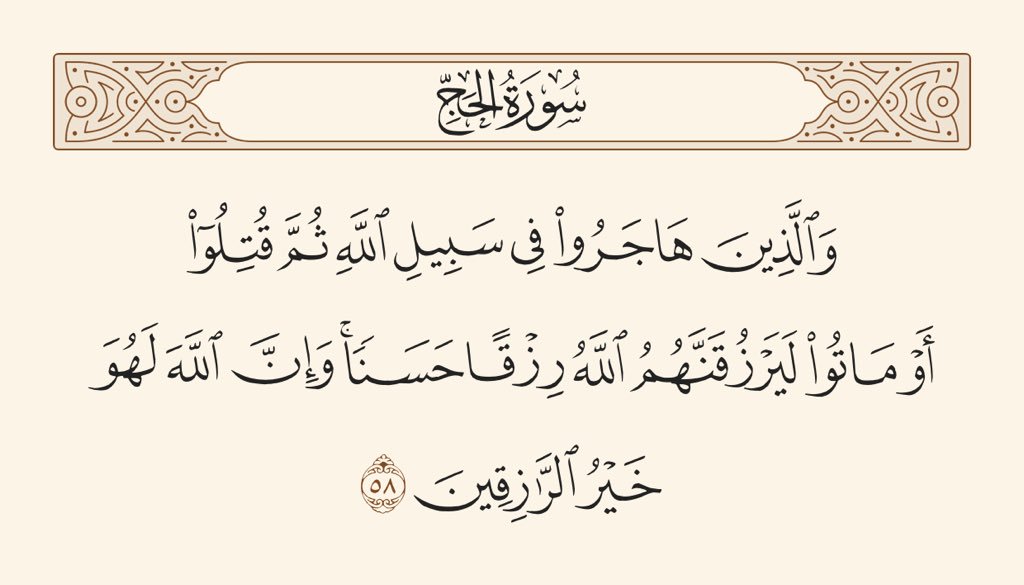 سُورَةُ الحَجِّ
وَٱلَّذِينَ هَاجَرُوا۟ فِى سَبِيلِ ٱللَّهِ ثُمَّ قُتِلُوٓا۟
أَوْ مَاتُوا۟ لَيَرْزُقَنَّهُمُ ٱللَّهُ رِزْقًا حَسَنًا ۚ وَإِنَّ ٱللَّهَ لَهُوَ
خَيْرُ ٱلرَّٰزِقِينَ ٥٨